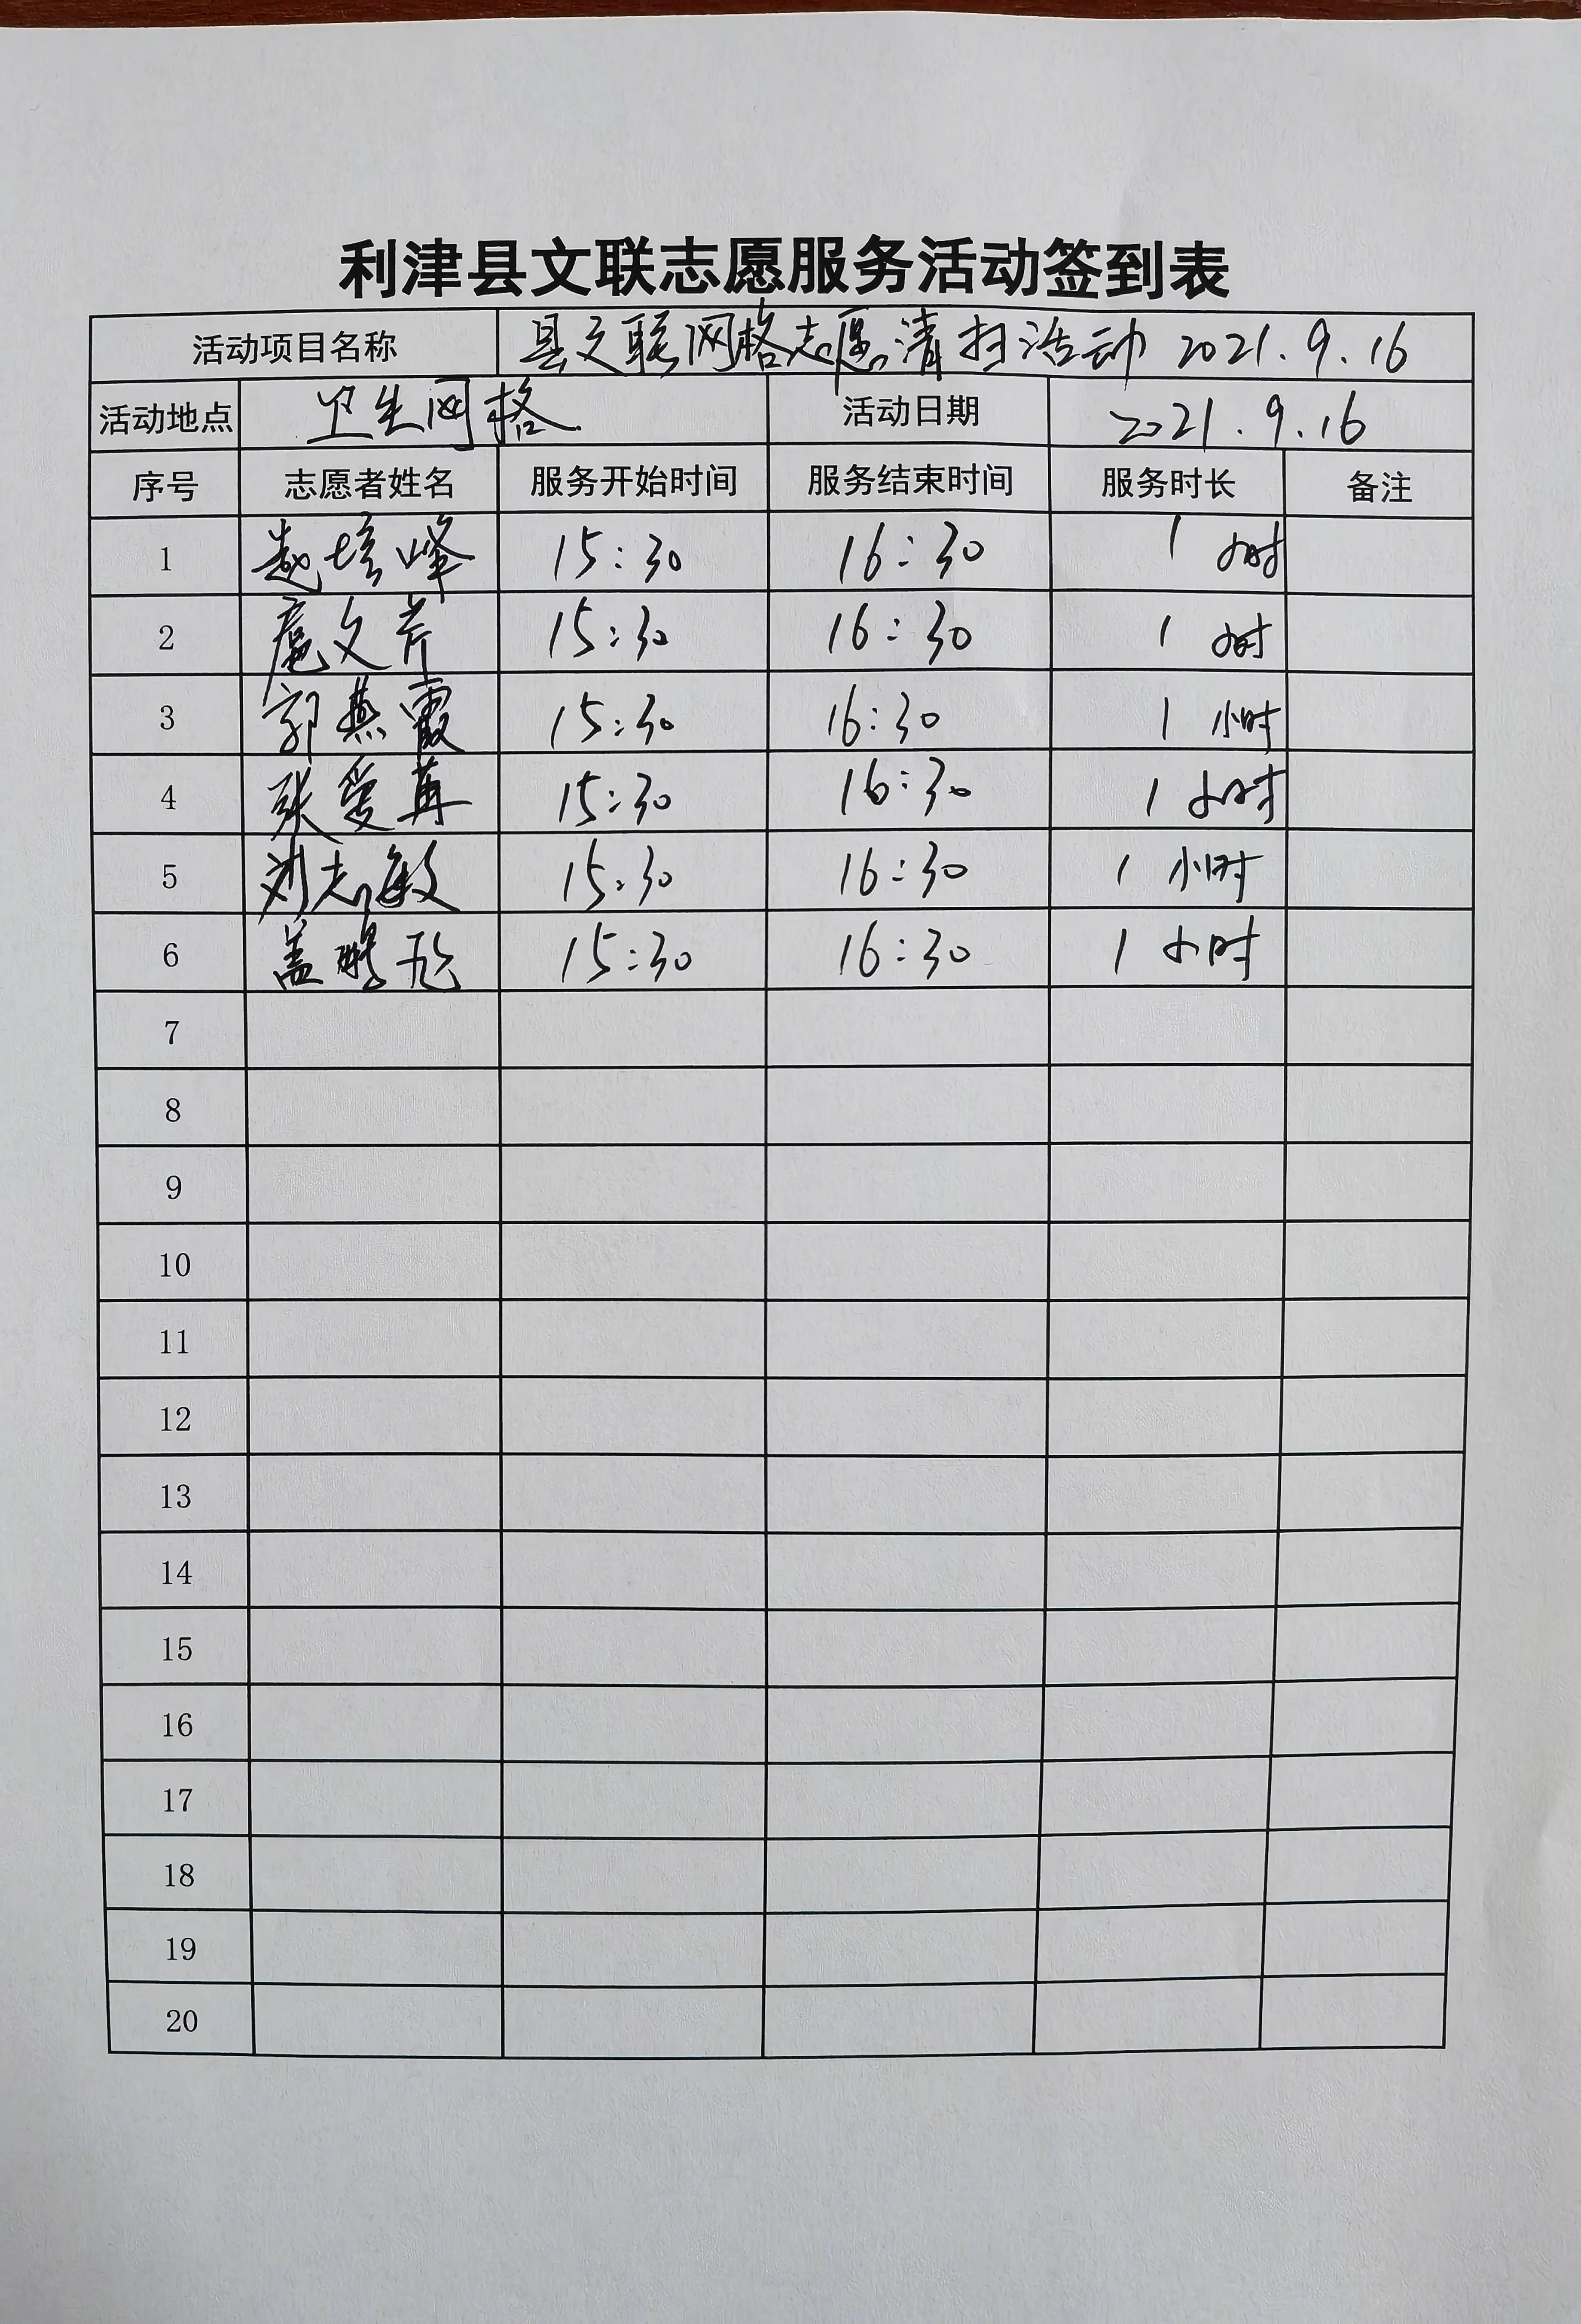 利津县文联志愿服务活动签到表
活动项目名称 县文联网格志愿清扫活动 2021.9.16
活动地点 卫生网格 活动日期 2021.9.16
序号 志愿者姓名 服务开始时间 服务结束时间 服务时长 备注
1 赵培峰 15:30 16:30 1 小时
2 扈文芹 15:30 16:30 1 小时
3 郭燕霞 15:30 16:30 1 小时
4 张爱苒 15:30 16:30 1 小时
5 刘志敏 15:30 16:30 1 小时
6 盖 15:30 16:30 1 小时
7
8
9
10
11
12
13
14
15
16
17
18
19
20